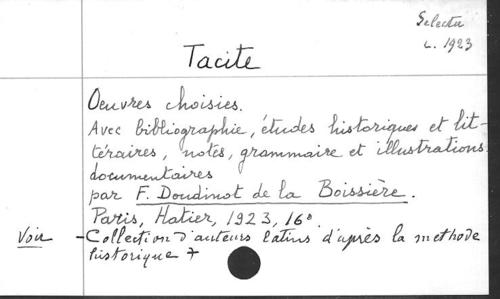 Selecta
L. 1923
Tacite
Oeuvres choisies.
Avec bibliographie, études historiques et lit-
téraires, notes, grammaire et illustrations
documentaires
par F. Doudinot de la Boissière.
Paris, Hatier, 1923, 16°
Voir - Collection d'auteurs latins d'après la methode
historique